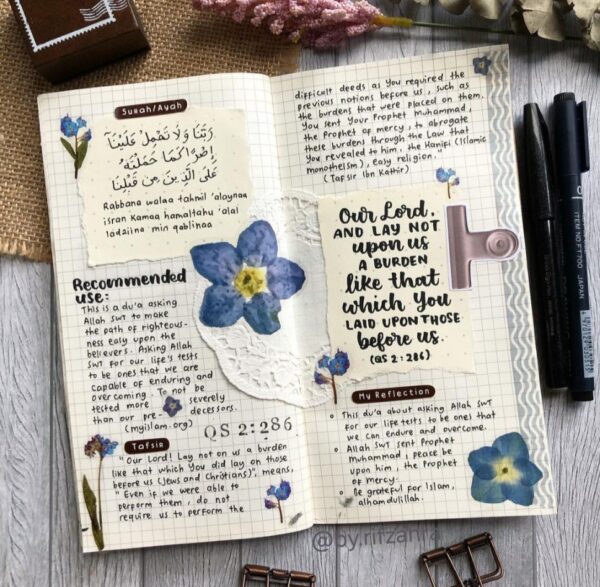 Surah/Ayah
رَبَّنَا وَلَا تَحْمِلْ عَلَيْنَآ
إِصْرًا كَمَا حَمَلْتَهُ
عَلَى الَّذِينَ مِن قَبْلِنَا
Rabbana walaa tahmil 'alaynaa
isran Kamaa hamaltahu 'alal
ladziina min qablinaa
Recommended
use:
This is a du'a asking
Allah SWT to make
the path of righteous-
ness easy upon the
believers. Asking Allah
SWT for our life's tests
to be ones that we are
capable of enduring and
overcoming. To not be
tested more severely
than our pre- decessors.
(myislam.org)
QS 2:286
Tafsir
"Our Lord! Lay not on us a burden
like that which You did lay on those
before us (Jews and Christians)", means,
"Even if we were able to
perform them, do not
require us to perform the
difficult deeds as You required the
previous nations before us, such as
the burdens that were placed on them.
You sent Your Prophet Muhammad,
the Prophet of mercy, to abrogate
these burdens through the Law that
You revealed to him, the Hanifi (Islamic
monotheism), easy religion."
(Tafsir Ibn Kathir)
Our Lord,
AND LAY NOT
upon us
A BURDEN
like that
which You
LAID UPON THOSE
before us.
(QS 2:286)
My Reflection
This du'a about asking Allah SWT
for our life tests to be ones that
we can endure and overcome.
Allah SWT sent Prophet
Muhammad, peace be
upon him, the Prophet
of Mercy.
Be grateful for Islam,
alhamdulillah.
ITEM NO FT700 JAPAN